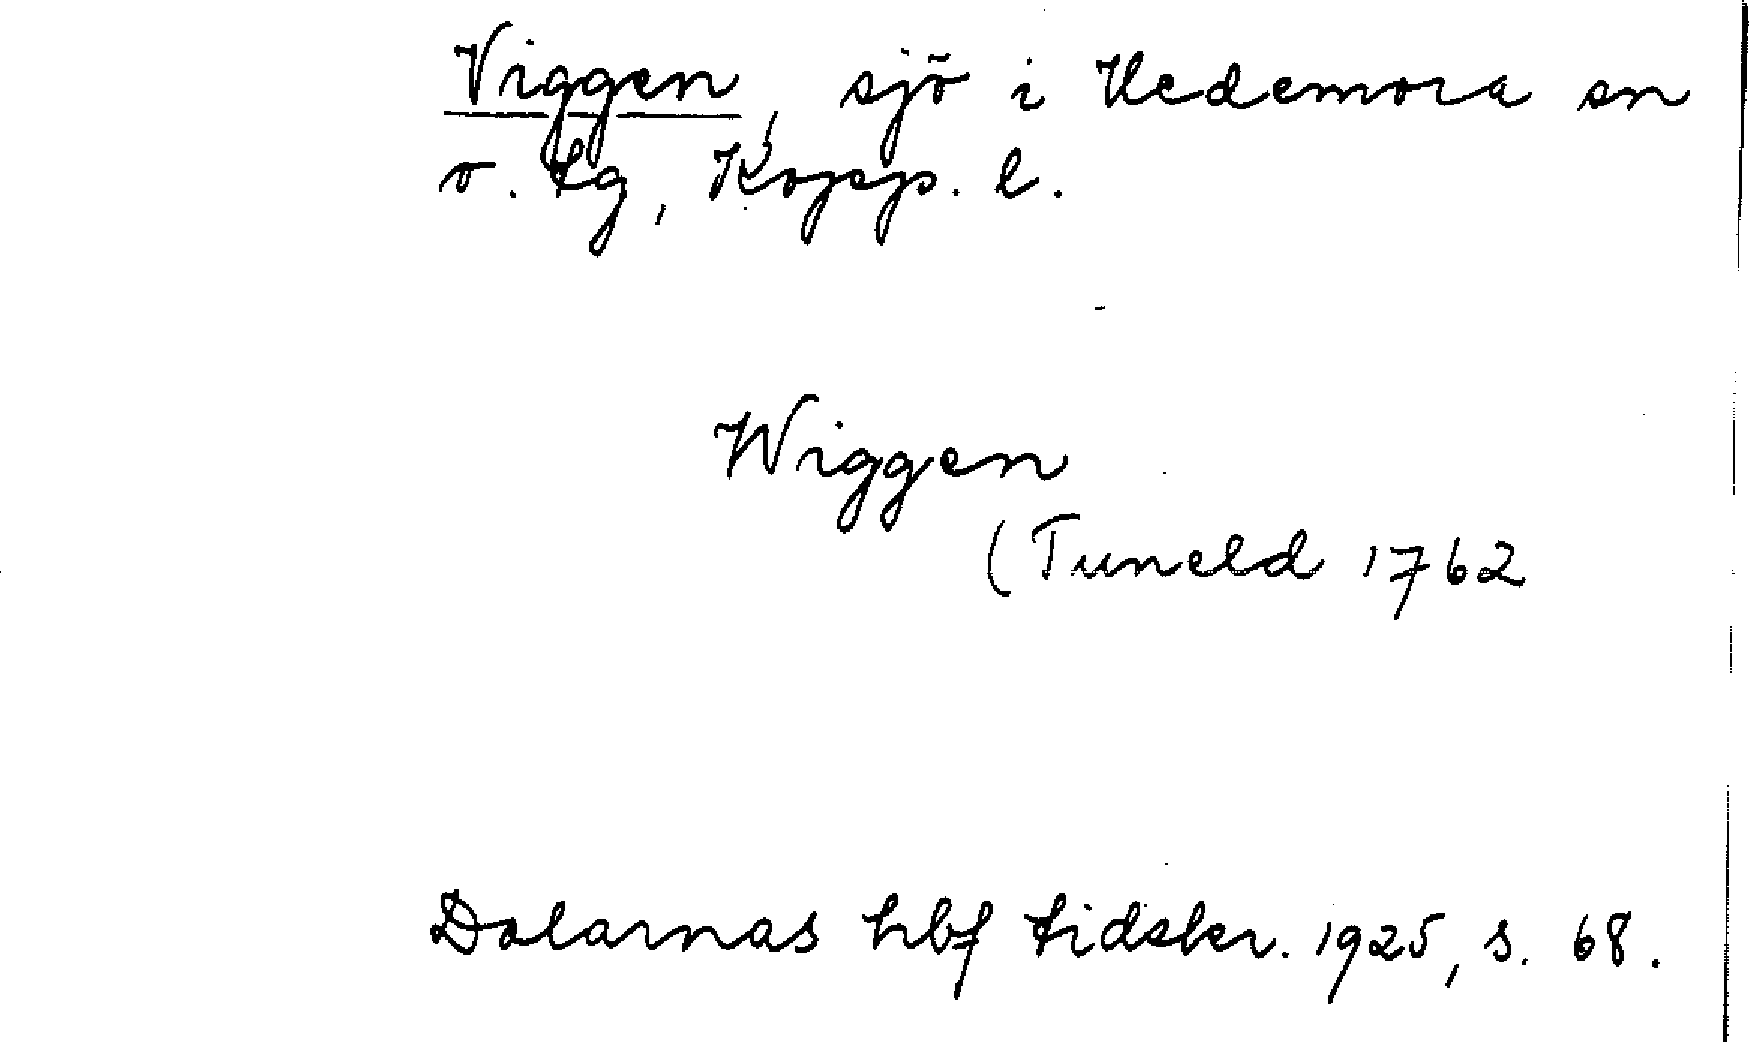 Viggen, sjö i Hedemora sn
o. tg, Kopp. l.
Wiggen
(Tuneld 1762
Dalarnas hbf tidskr. 1925, s. 68.